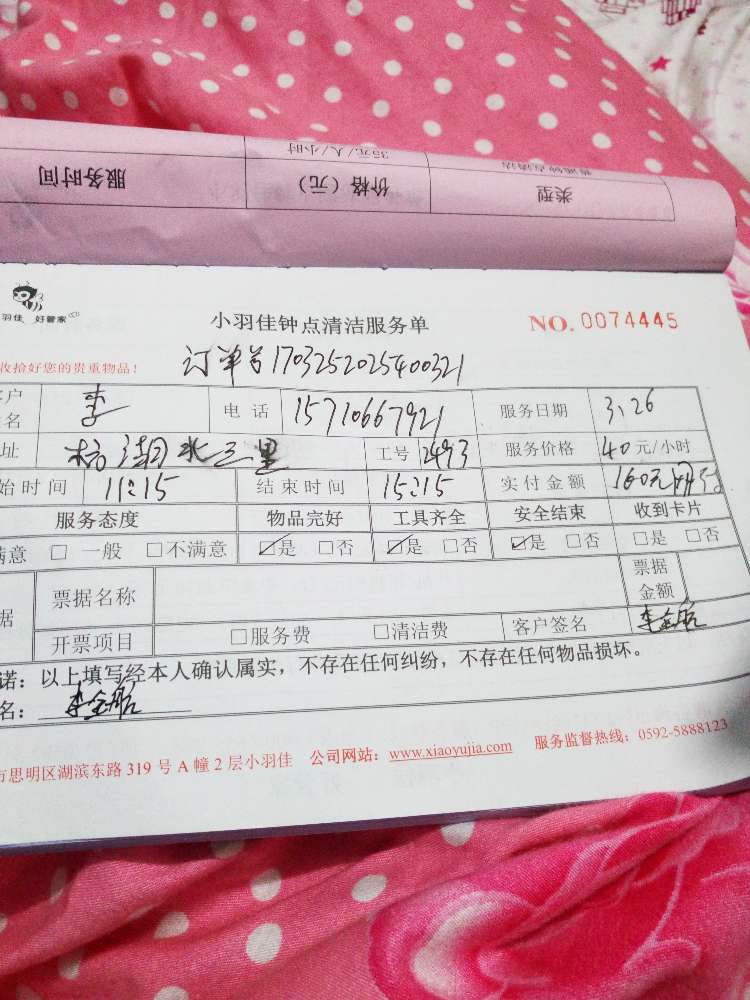 35元/人/小时
类型 价格(元) 服务时间
羽佳 好管家
小羽佳钟点清洁服务单 NO. 0074445
收拾好您的贵重物品!
订单号1703252025400321
客户 名 李 电话 15710667921 服务日期 3.26
址 水三里 工号 2493 服务价格 40元/小时
始时间 11:15 结束时间 15:15 实付金额 160元
服务态度 物品完好 工具齐全 安全结束 收到卡片
满意 □ 一般 □不满意 ☑是 □否 ☑是 □否 ☑是 □否 □是 □否
据 票据名称 票据金额
开票项目 □服务费 □清洁费 客户签名 李
诺:以上填写经本人确认属实,不存在任何纠纷,不存在任何物品损坏。
名: 李
市思明区湖滨东路 319 号 A 幢 2 层小羽佳 公司网站:www.xiaoyujia.com 服务监督热线:0592-5888123